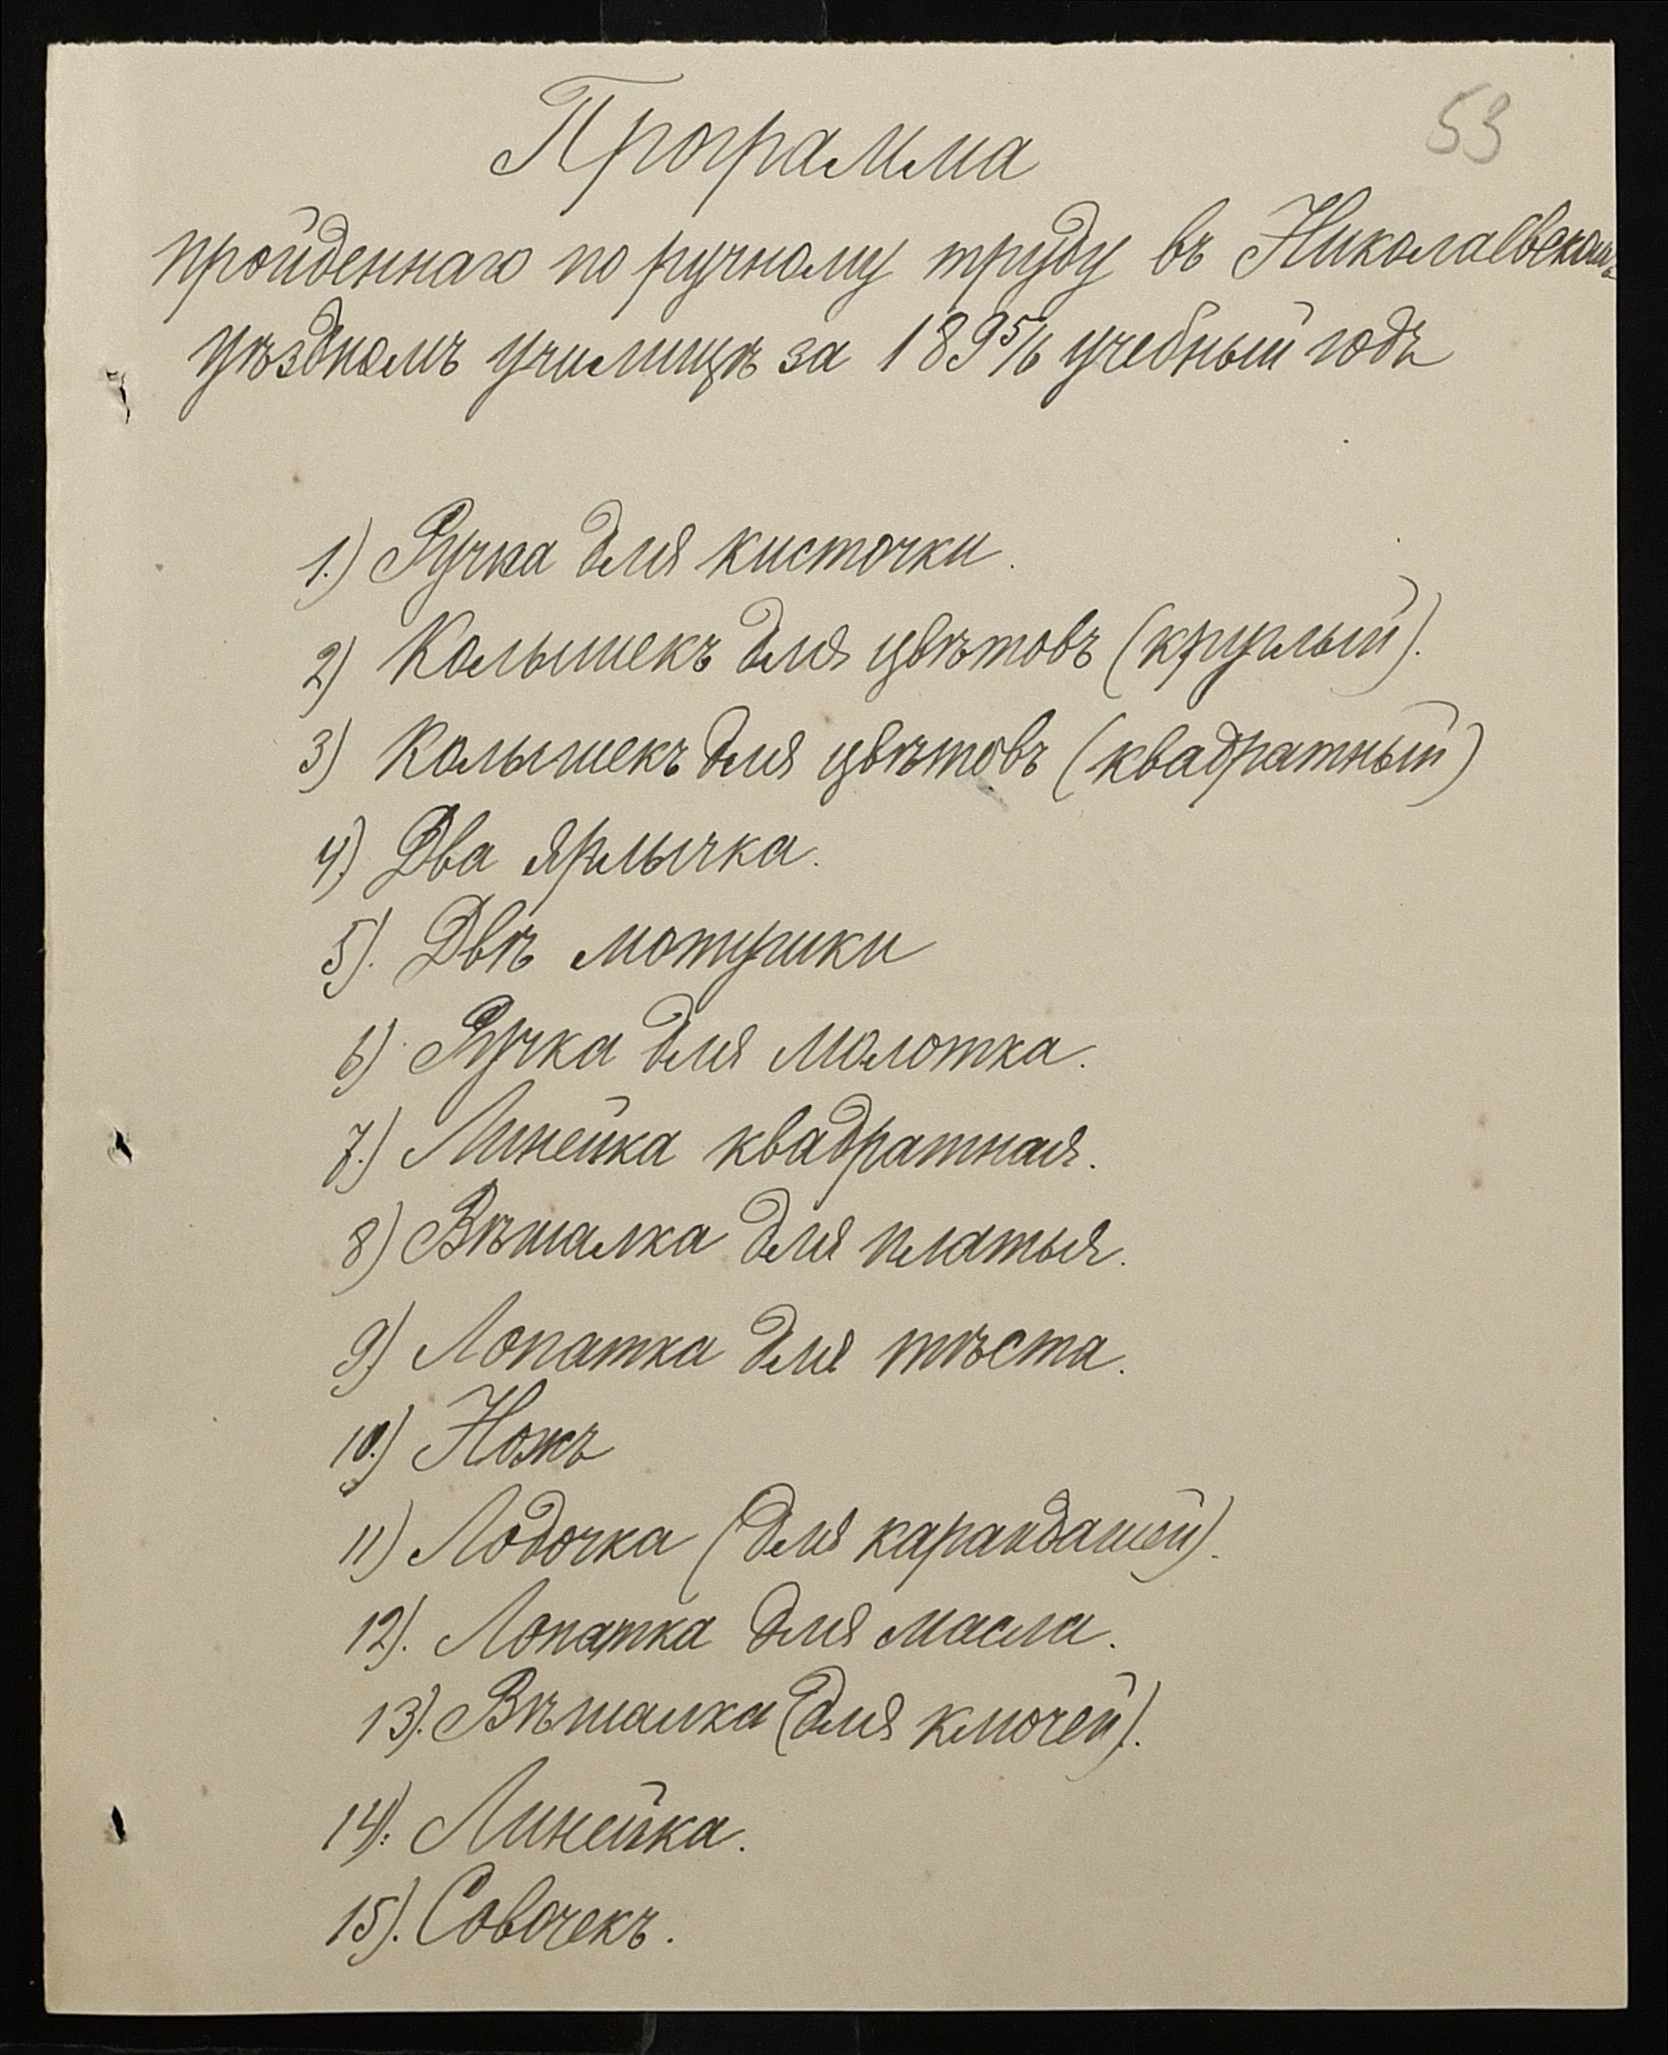 53
Программа
пройденная по ручному труду въ Николаевскомъ
уѣздномъ училищѣ за 1895/6 учебный годъ
1.) Ручка для кисточки.
2) Колышекъ для цвѣтовъ (круглый).
3) Колышекъ для цвѣтовъ (квадратный)
4.) Два ярлычка.
5). Двѣ мотушки
6) Ручка для молотка.
7.) Линейка квадратная.
8) Вѣшалка для платья.
9.) Лопатка для тѣста.
10.) Ножъ
11) Лодочка (для карандашей).
12). Лопатка для масла.
13). Вѣшалка (для ключей).
14). Линейка.
15). Совочекъ.